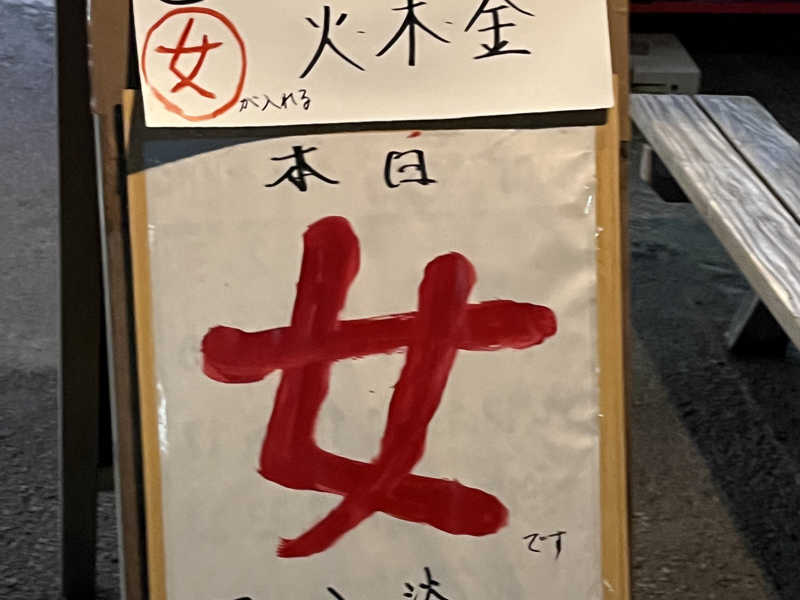 女 火・木・金
が入れる
本日
女
です